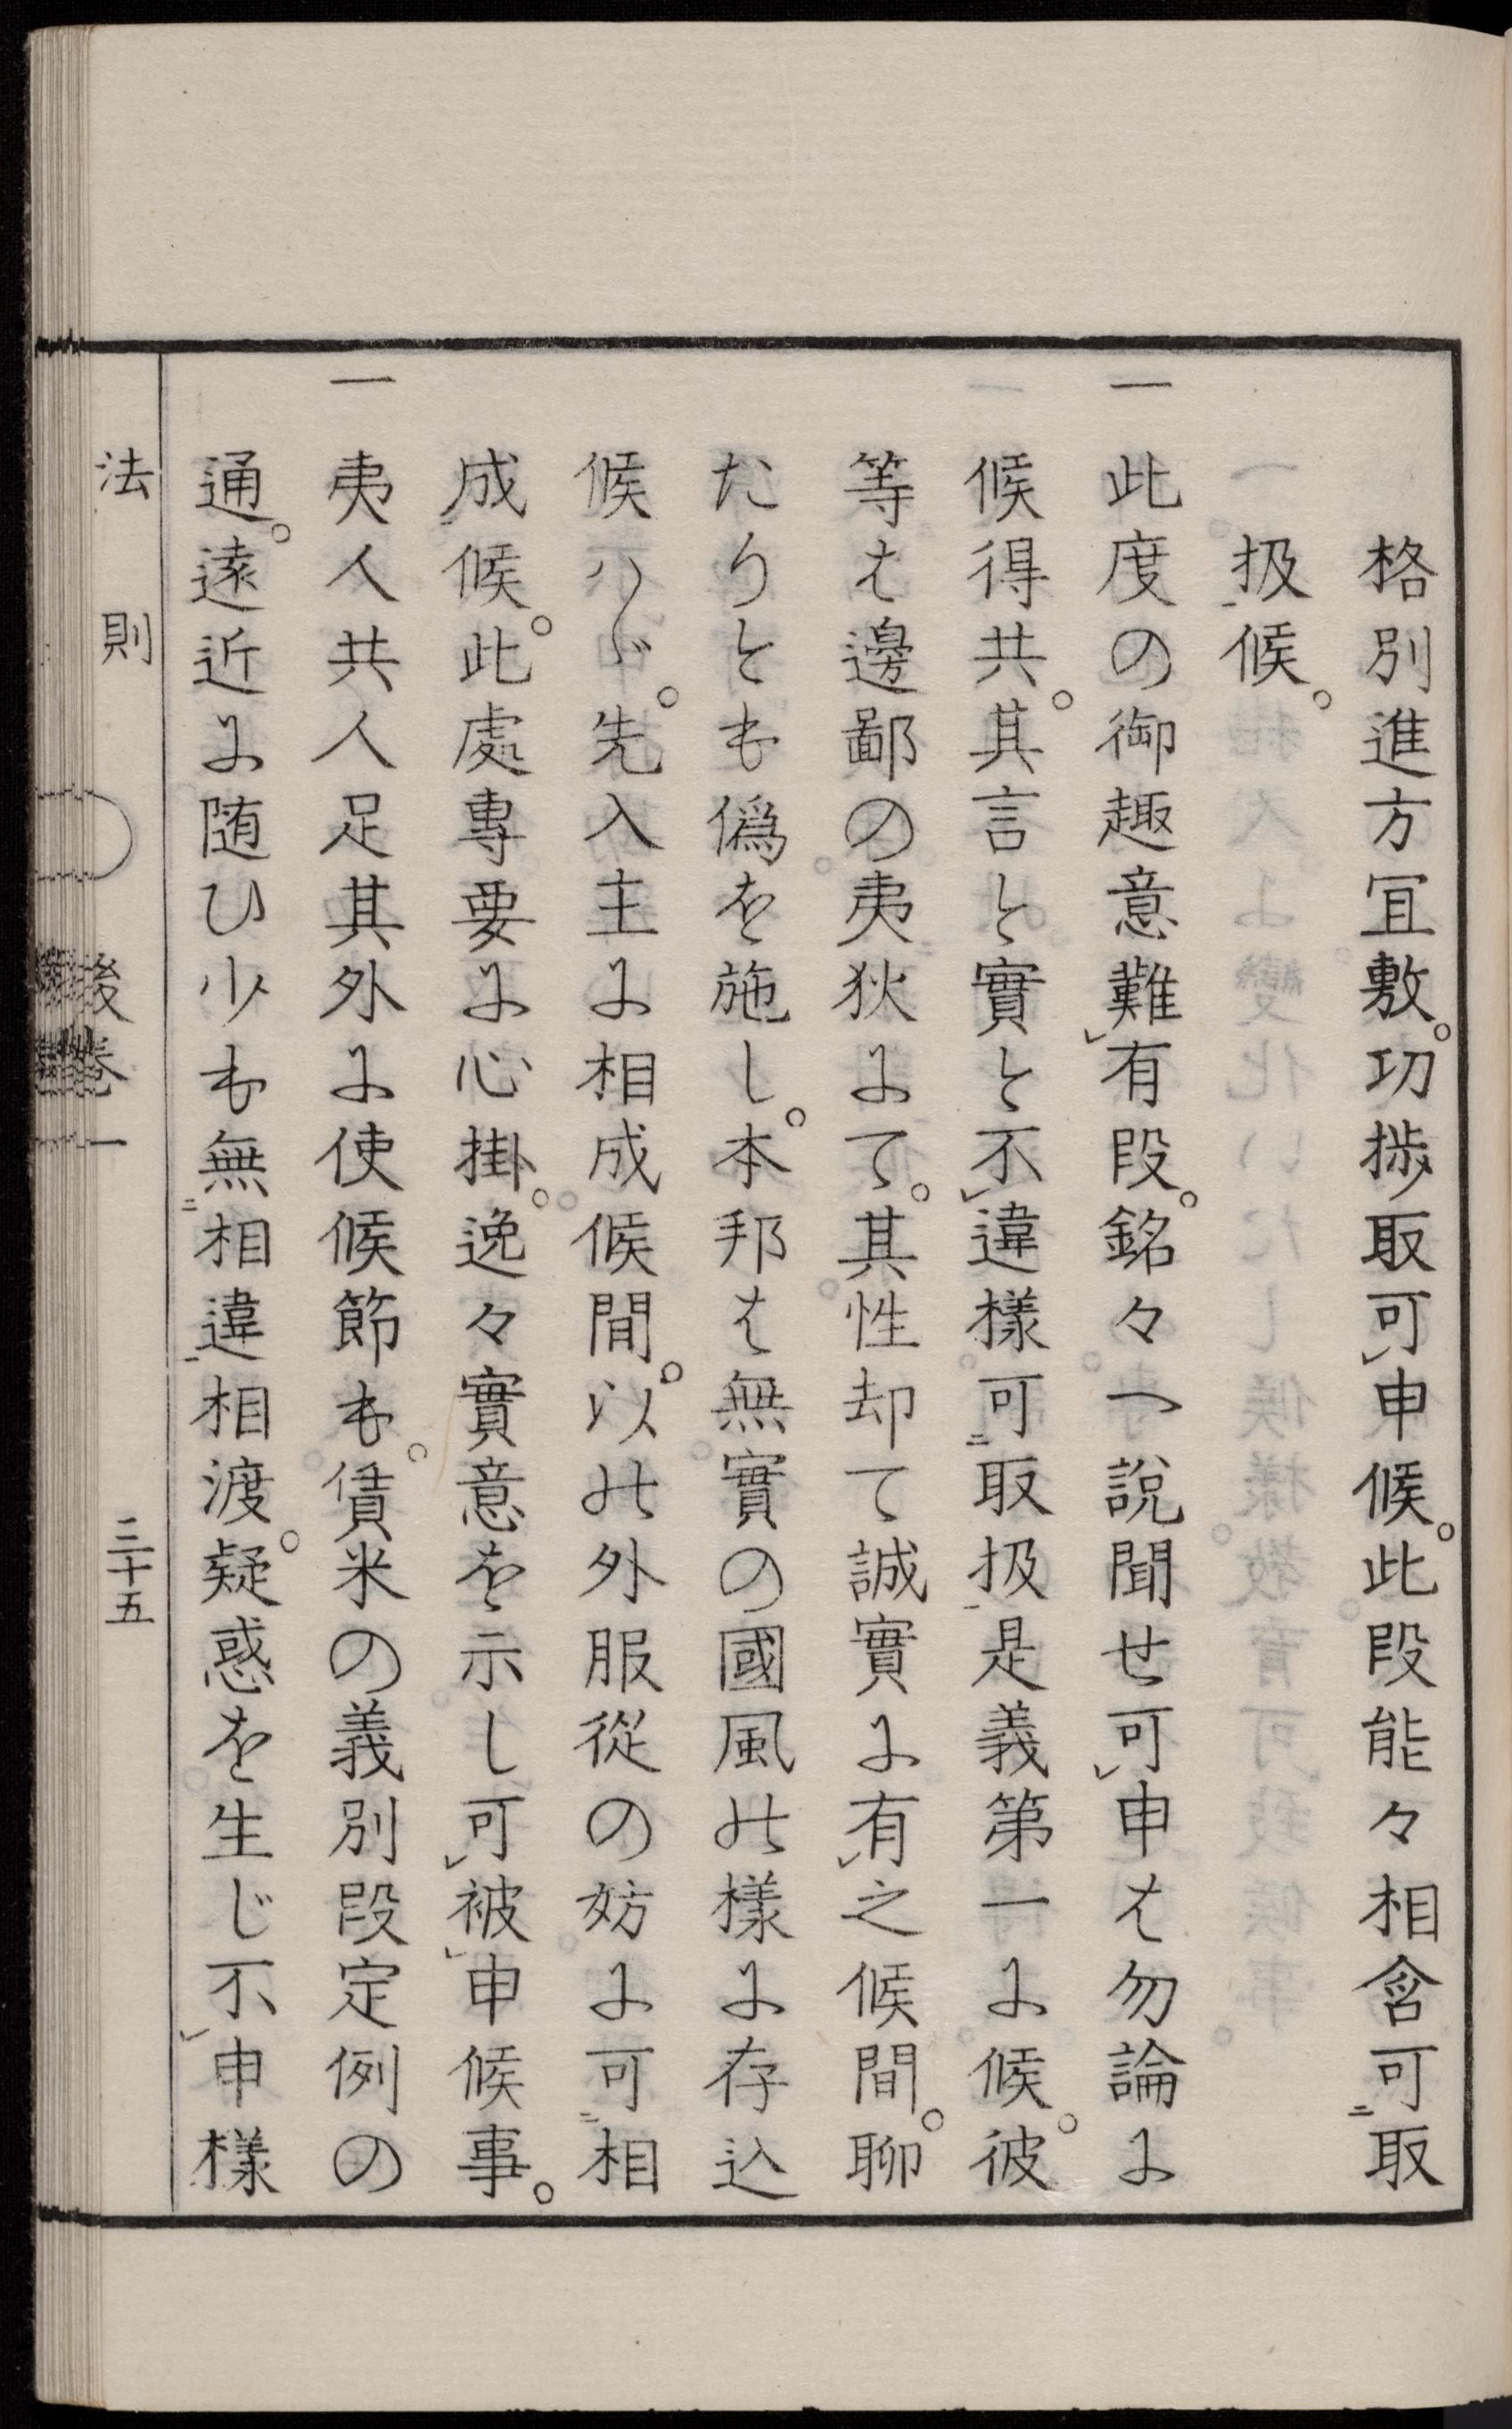 格別進方冝敷。切捗取可㆑申候。此段能々相含可㆓取
扱㆒候。
一此度の御趣意難㆑有段。銘々へ說聞せ可㆑申は勿論に
候得共。其言と實と不㆑違樣可㆓取扱㆒是義第一に候。彼
等は邊鄙の夷狄にて。其性却て誠實に有㆑之候間。聊
たりとも僞を施し。本邦は無實の國風の樣に存込
候ハゞ。先入主に相成候間。以の外服從の妨に可㆓相
成㆒候。此處專要に心掛。逸々實意を示し可㆑被㆑申候事。
一夷人共人足其外に使候節も。賃米の義別段定例の
通。遠近に随ひ少も無㆓相違㆒相渡。疑惑を生じ不㆑申樣
法則　後卷一　三十五